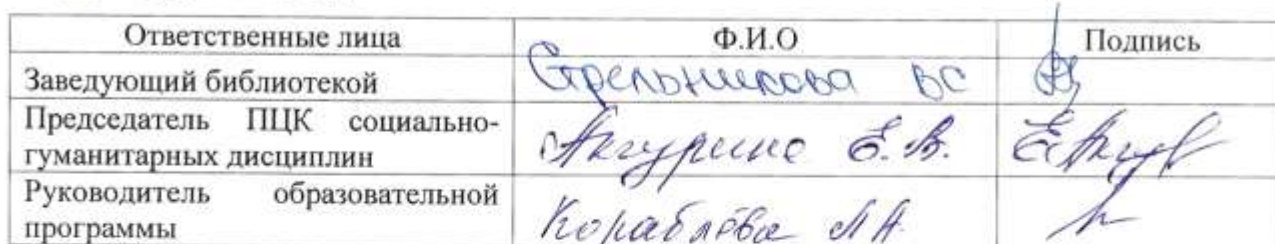 Ответственные лица Ф.И.О Подпись
Заведующий библиотекой Стрельникова ВС
Председатель ПЦК социально-
гуманитарных дисциплин Акчурина Е.В.
Руководитель образовательной
программы Кораблёва ЛА